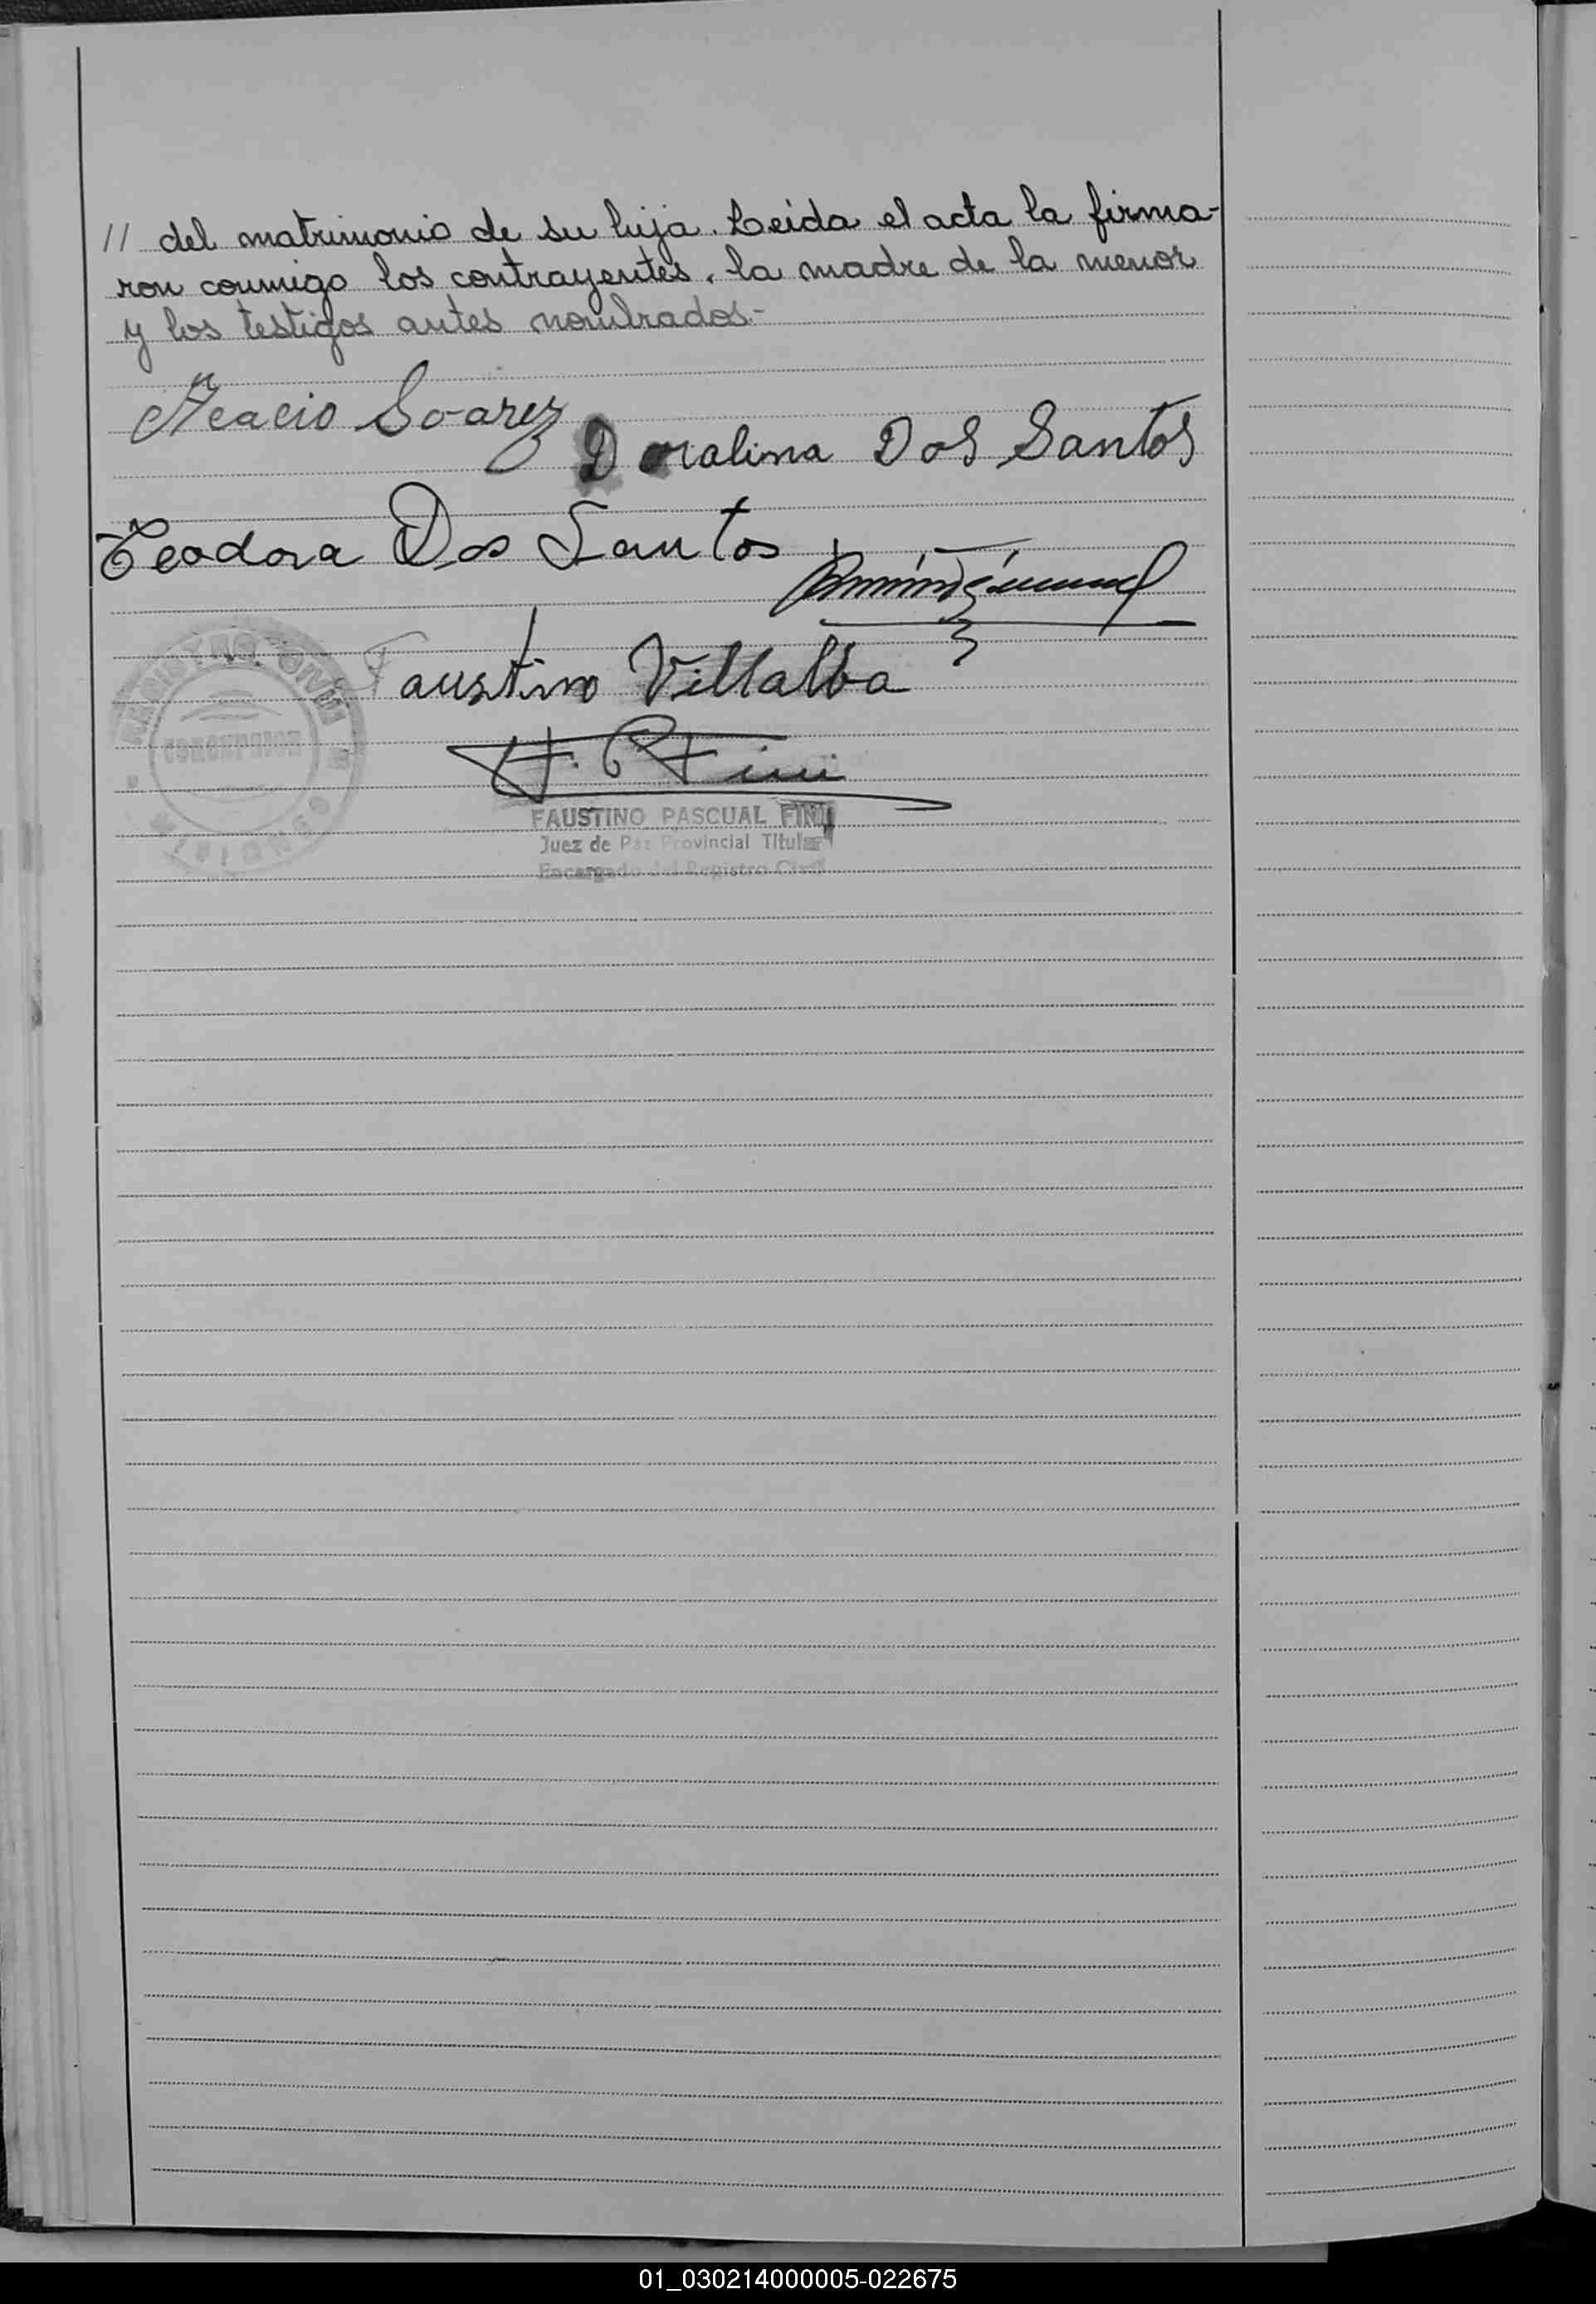 // del matrimonio de su hija. Leída el acta la firma-
ron conmigo los contrayentes, la madre de la menor
y los testigos antes nombrados.-
Acacio Soarez
Doralina Dos Santos
Teodora Dos Santos
Faustino Villalba
F. P. Fini
REGISTRO CIVIL
CONCEPCION
MISIONES
FAUSTINO PASCUAL FINI
Juez de Paz Provincial Titular
Encargado del Registro Civil
01_030214000005-022675